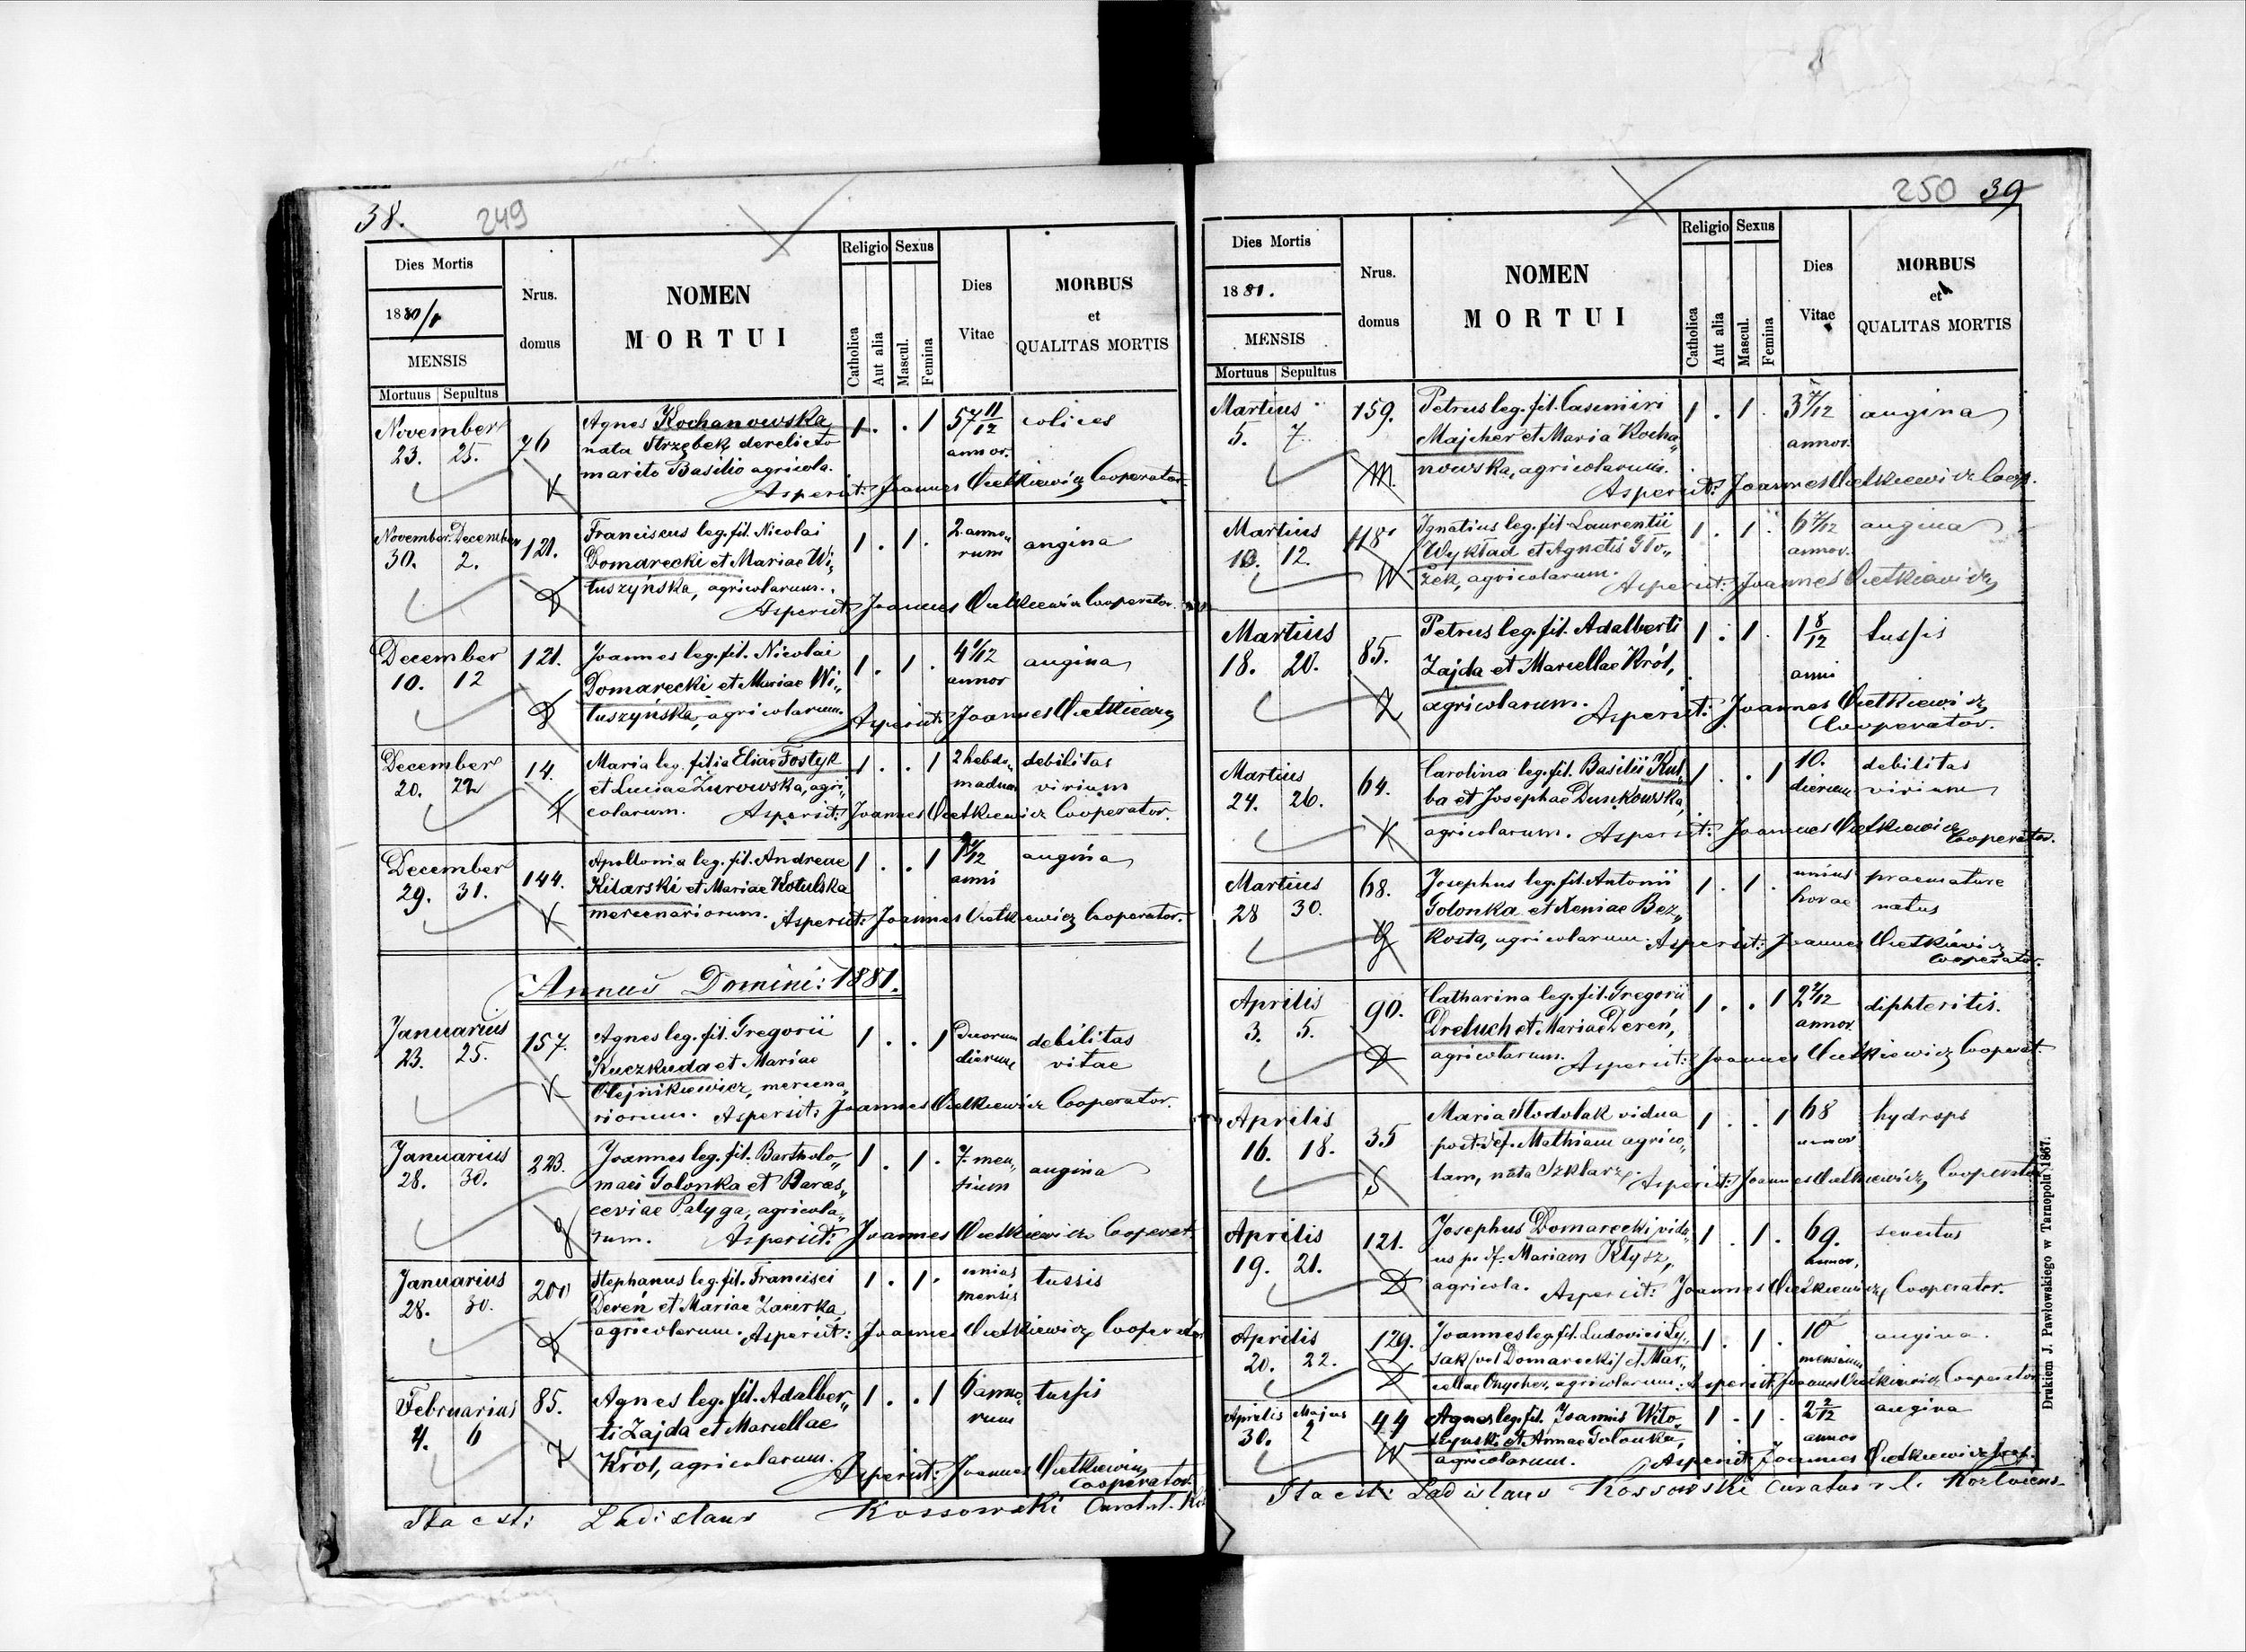 38. 249
Dies Mortis
1880/1
MENSIS
Mortuus Sepultus
Nrus. domus
NOMEN
MORTUI
Religio Sexus
Catholica
Aut alia
Mascul.
Femina
Dies
Vitae
MORBUS
et
QUALITAS MORTIS
November 76 Agnes Kochanowska 1 . . 1 57 11/12 colices
23. 25. nata Strzębek derelicto annor.
K marito Basilio agricola.
Aspersit: Joannes Cooperator
November December 121. Franciscus leg. fil. Nicolai 1 . 1 . 2 anno„ angina
30. 2. Domarecki et Mariae Wi„ rum
D tuszyńska, agricolarum.
Aspersit: Joannes Cooperator.
December 121. Joannes leg. fil. Nicolai 1 . 1 . 4 1/12 angina
10. 12 Domarecki et Mariae Wi„ annor
D tuszyńska, agricolarum. Aspersit: Joannes
December 14. Maria leg. filia Eliae Fostyk 1 . . 1 2 hebdo„ debilitas
20. 22 et Luciae Żurowska, agri„ madum virium
F colarum. Aspersit: Joannes Cooperator.
December 144. Apollonia leg. fil. Andreae 1 . . 1 angina
29. 31. Kitarski et Mariae Kotulska anni
K mercenariorum. Aspersit: Joannes Cooperator.
Annus Domini: 1881.
Januarius 157. Agnes leg. fil. Gregorii 1 . . 1 Duorum debilitas
23. 25. Kuczkuda et Mariae dierum vitae
K Olejnikiewicz, mercena„
riorum. Aspersit: Joannes Cooperator.
Januarius 223. Joannes leg. fil. Bartholo„ 1 . 1 . 7. men„ angina
28. 30. maei Golonka et Paras„ sium
g ceviae Patyga, agricola„
rum. Aspersit: Joannes Cooperat.
Januarius 200 Stephanus leg. fil. Francisci 1 . 1 . unius tussis
28. 30. Dereń et Mariae Zacirka mensis
D agricolarum. Aspersit: Joannes Cooperator
Februarius 85. Agnes leg. fil. Adalber„ 1 . . 1 6 anno„ tussis
4. 6 ti Zajda et Marcellae rum
Z Król, agricolarum.
Aspersit: Joannes
Cooperator.
Ita est: Ladislaus Kossowski
250 39
Dies Mortis
1881.
MENSIS
Mortuus Sepultus
Nrus.
domus
NOMEN
MORTUI
Religio Sexus
Catholica
Aut alia
Mascul.
Femina
Dies
Vitae
MORBUS
et
QUALITAS MORTIS
Martius 159. Petrus leg. fil. Casimiri 1 . 1 . 3 7/12 angina
5. 7. Majcher et Maria Kocha„ annor.
M. nowska, agricolarum.
Aspersit: Joannes Coop.
Martius 118 Ignatius leg. fil. Laurentii 1 . 1 . angina
10. 12. Wykład et Agnetis Sto„ annor.
W żek, agricolarum. Aspersit: Joannes
Martius 85. Petrus leg. fil. Adalberti 1 . 1 . 1 8/12 tussis
18. 20. Zajda et Marcellae Król, anni
Z agricolarum. Aspersit: Joannes
Cooperator.
Martius 64. Carolina leg. fil. Basilii Kul„ 1 . . 1 10. debilitas
24. 26. ba et Josephae Dunkowska, dierum virium
K agricolarum. Aspersit: Joannes
Cooperator.
Martius 68. Josephus leg. fil. Antonii 1 . 1 . unius praemature
28 30. Golonka et Xeniae Bez„ horae natus
g kosta, agricolarum. Aspersit: Joannes
Cooperator.
Aprilis 90. Catharina leg. fil. Gregorii 1 . . 1 diphteritis.
3. 5. Dreluch et Mariae Dereń, annor.
D agricolarum. Aspersit: Joannes Cooperat.
Aprilis 35 Maria Stodolak vidua 1 . . 1 68 hydrops
16. 18. post def. Mathiam agrico„ annor
S lam, nata Szklarz. Aspersit: Joannes Cooperator
Aprilis 121. Josephus Domarecki vidu„ 1 . 1 . 69. senectus
19. 21. us p. df. Mariam Kłysz, annor.
D agricola. Aspersit: Joannes Cooperator.
Aprilis 129. Joannes leg. fil. Ludovici Ły„ 1 . 1 . 10 angina.
20. 22. sak (vel Domarecki) et Mar„ mensium
D cellae agricolarum. Aspersit: Joannes Cooperator
Aprilis Majus 44 Agnes leg. fil. Joannis Wito„ 1 . 1 . 2 2/12 angina
30. 2 szynski et Annae Golonka, annor
W agricolarum. Aspersit: Joannes
Ita est: Ladislaus Kossowski Curatus r. l.
Drukiem J. Pawlowskiego w Tarnopolu 1867.